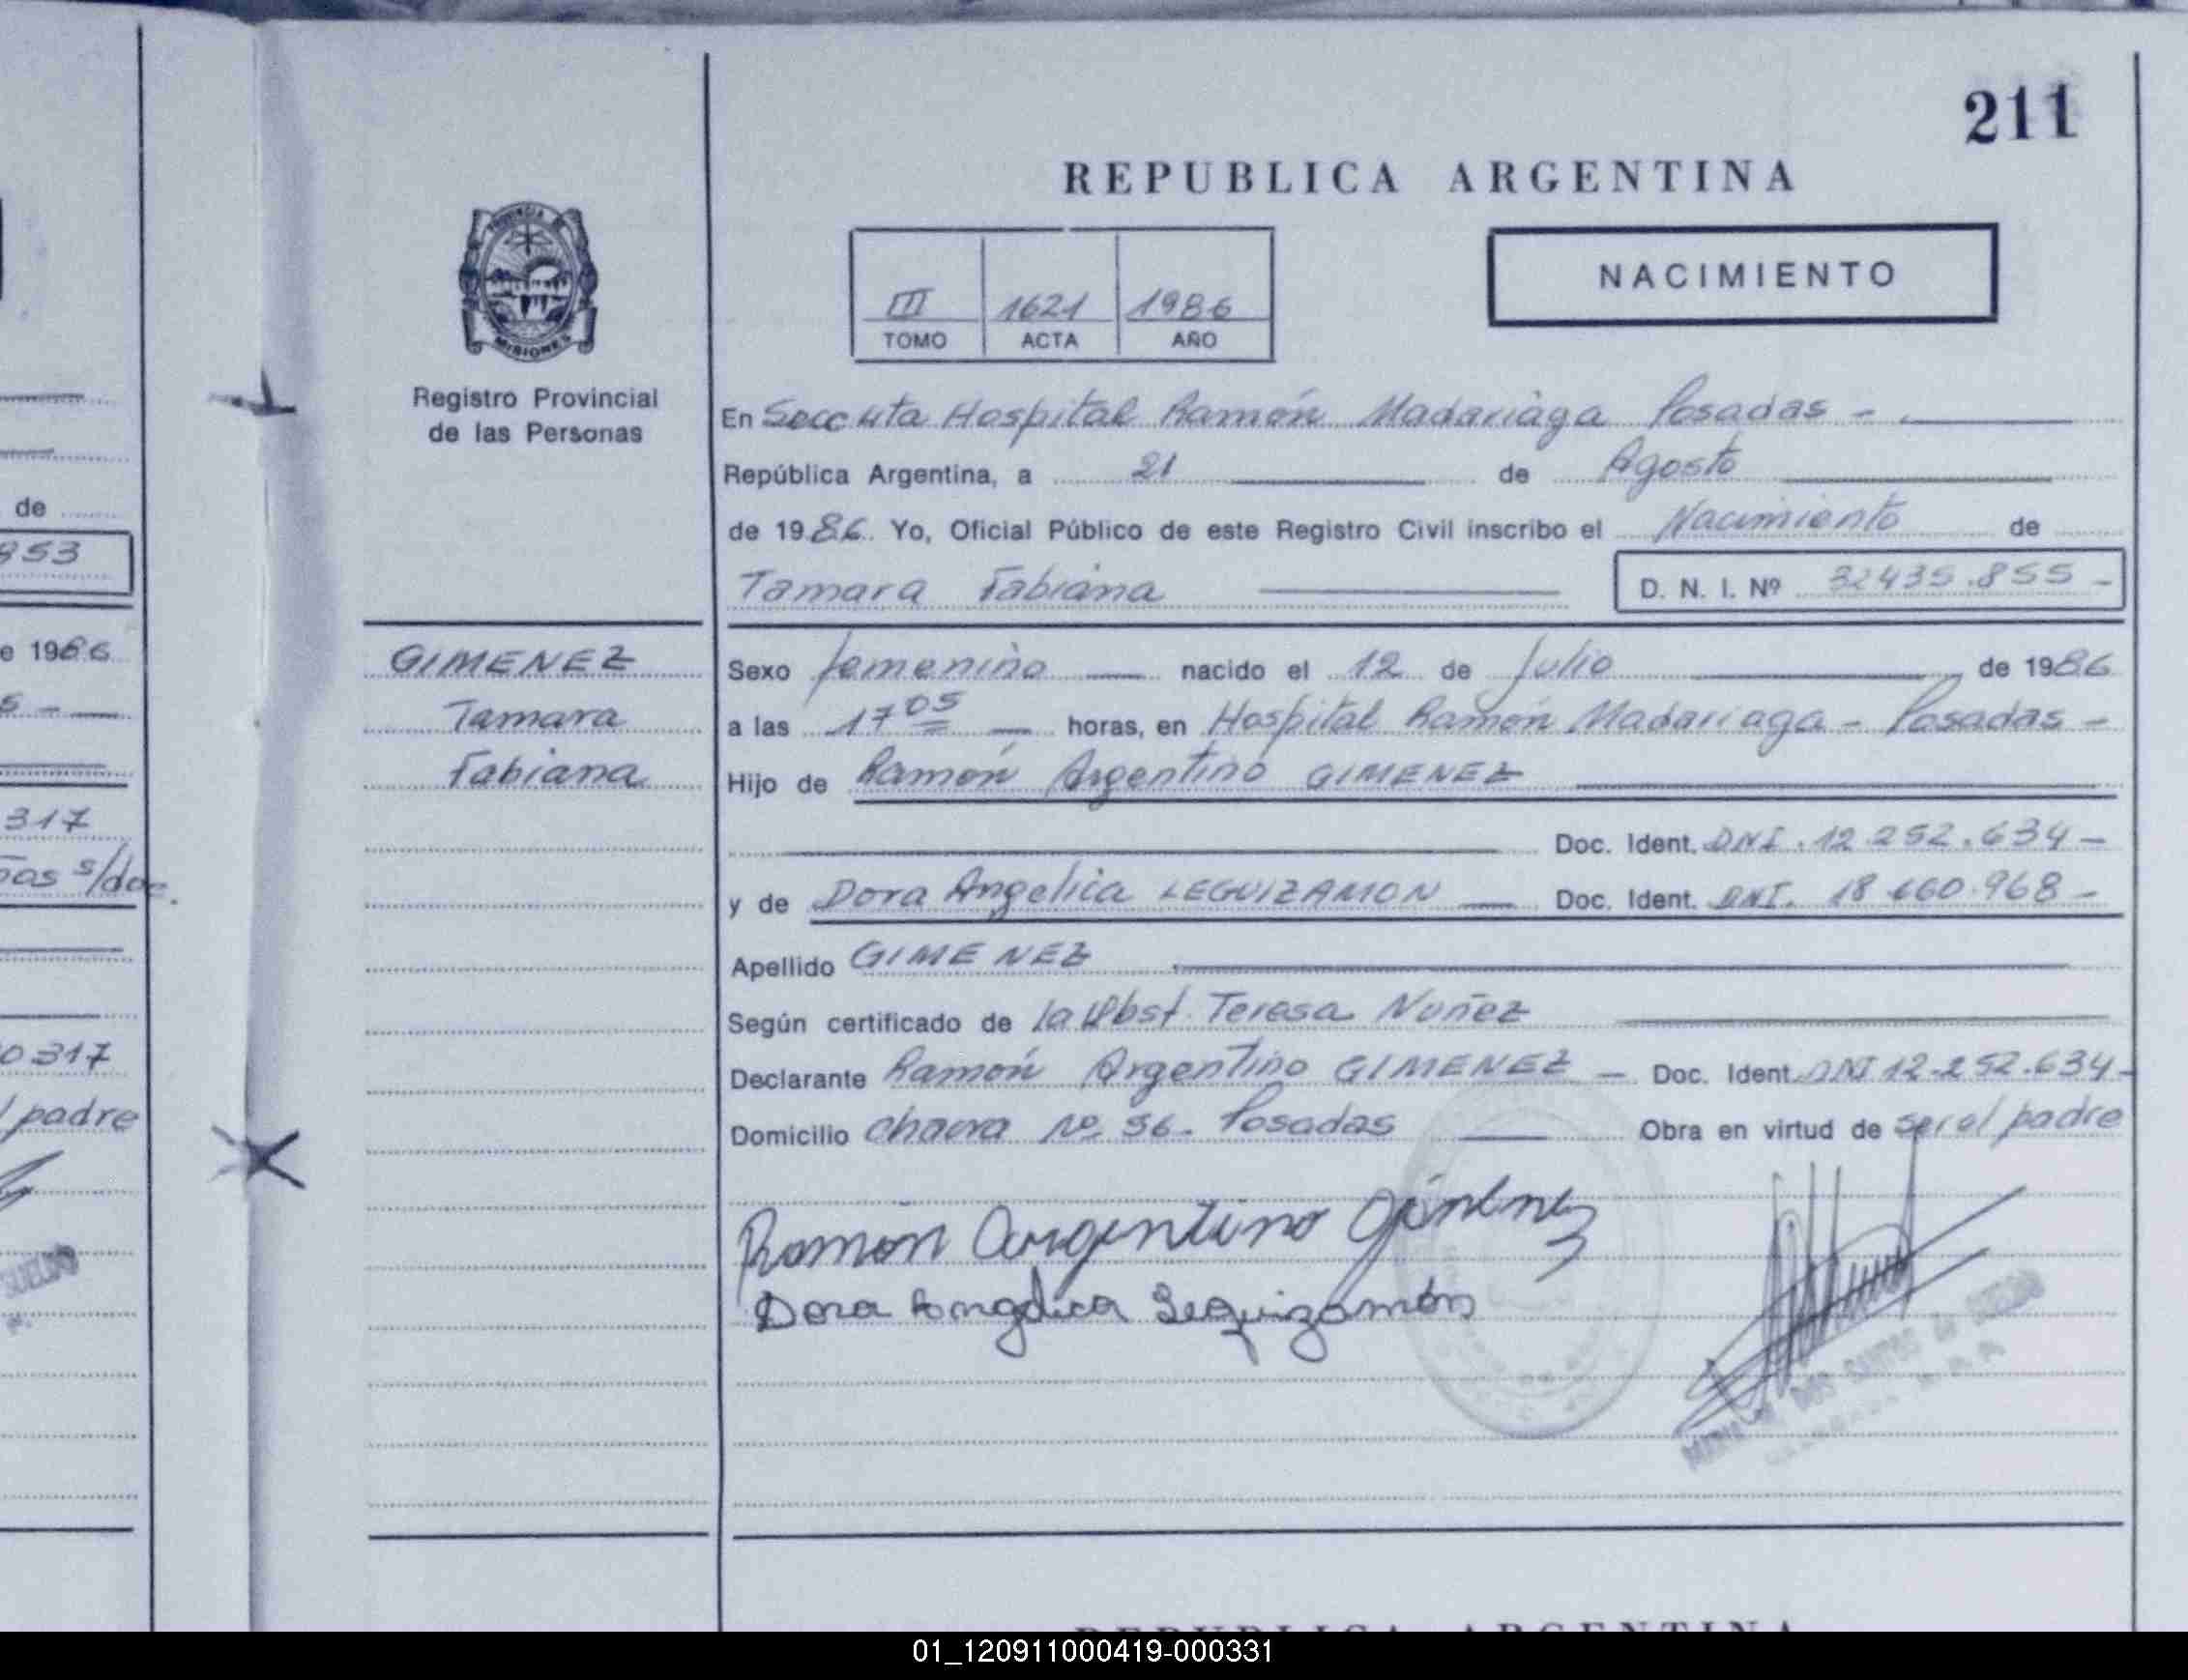 211
REPUBLICA ARGENTINA
NACIMIENTO
III 1621 1986
TOMO ACTA AÑO
PROVINCIA DE
MISIONES
Registro Provincial
de las Personas
En Hospital Ramón Madariaga Posadas -
República Argentina, a 21 de Agosto
de 1986. Yo, Oficial Público de este Registro Civil inscribo el Nacimiento de
Tamara Fabiana D. N. I. Nº 32435.855 -
GIMENEZ
Tamara
Fabiana
Sexo femenino nacido el 12 de Julio de 1986
a las 17 05 horas, en Hospital Ramón Madariaga - Posadas -
Hijo de Ramón Argentino GIMENEZ
Doc. Ident. DNI. 12.252.634 -
y de Dora Angelica LEGUIZAMON Doc. Ident. DNI. 18.660.968 -
Apellido GIMENEZ
Según certificado de la Obst. Teresa Nuñez
Declarante Ramón Argentino GIMENEZ - Doc. Ident. DNI 12.252.634 -
Domicilio Chacra Nº 36. Posadas Obra en virtud de ser el padre
Ramon Argentino Gimenez
Dora Angelica Leguizamón
DOS SANTOS de
de
953
e 1986
317
s/doc.
0317
padre
REPUBLICA ARGENTINA
01_120911000419-000331